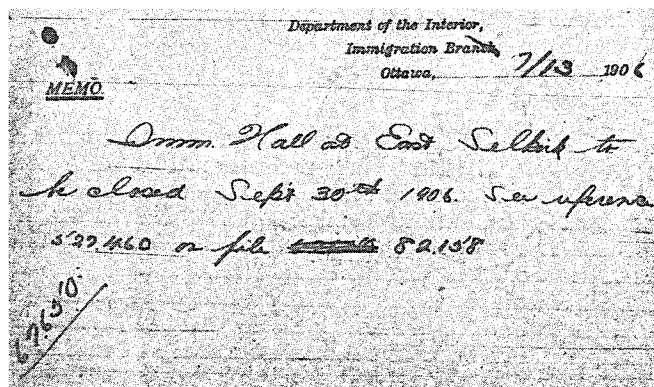 Department of the Interior,
Immigration Branch
Ottawa, 7/13 1906
MEMO.
Imm. Hall at East Selkirk to
be closed Sept 30th 1906. See reference
527460 on file 82158
67.6510.